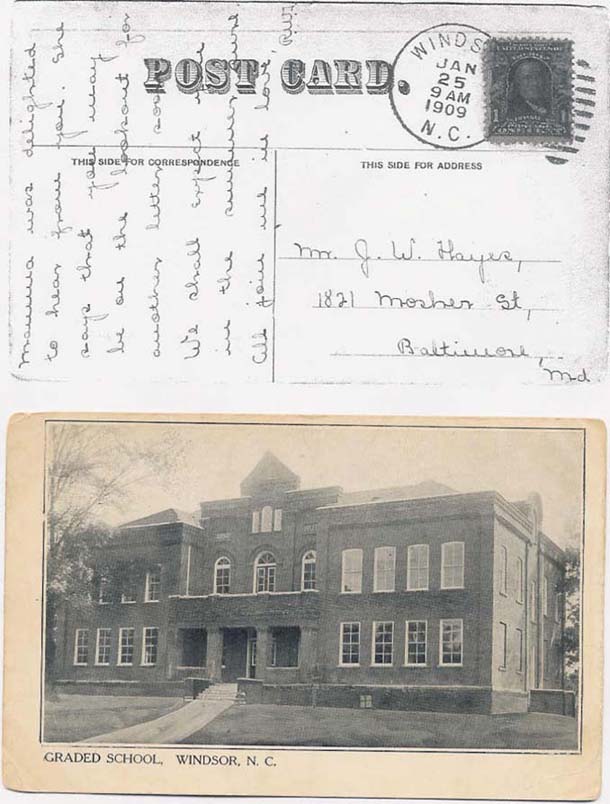 POST CARD.
WINDS
JAN
25
9 AM
1909
N. C.
1
THIS SIDE FOR CORRESPONDENCE
THIS SIDE FOR ADDRESS
Mamma was delighted
to hear from you. She
says that you may
be on the lookout for
another letter soon.
We shall expect you
in the summer sure.
All join me in love.
Mr. J. W. Hayes,
1821 Mosher St,
Baltimore,
Md
GRADED SCHOOL, WINDSOR, N. C.